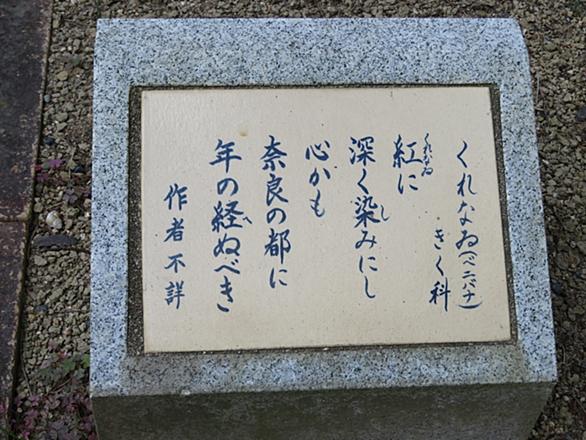 くれなゐ(ベニバナ)
きく科
紅に
くれなゐ
深く染みにし
し
心かも
奈良の都に
年の経ぬべき
へ
作者不詳